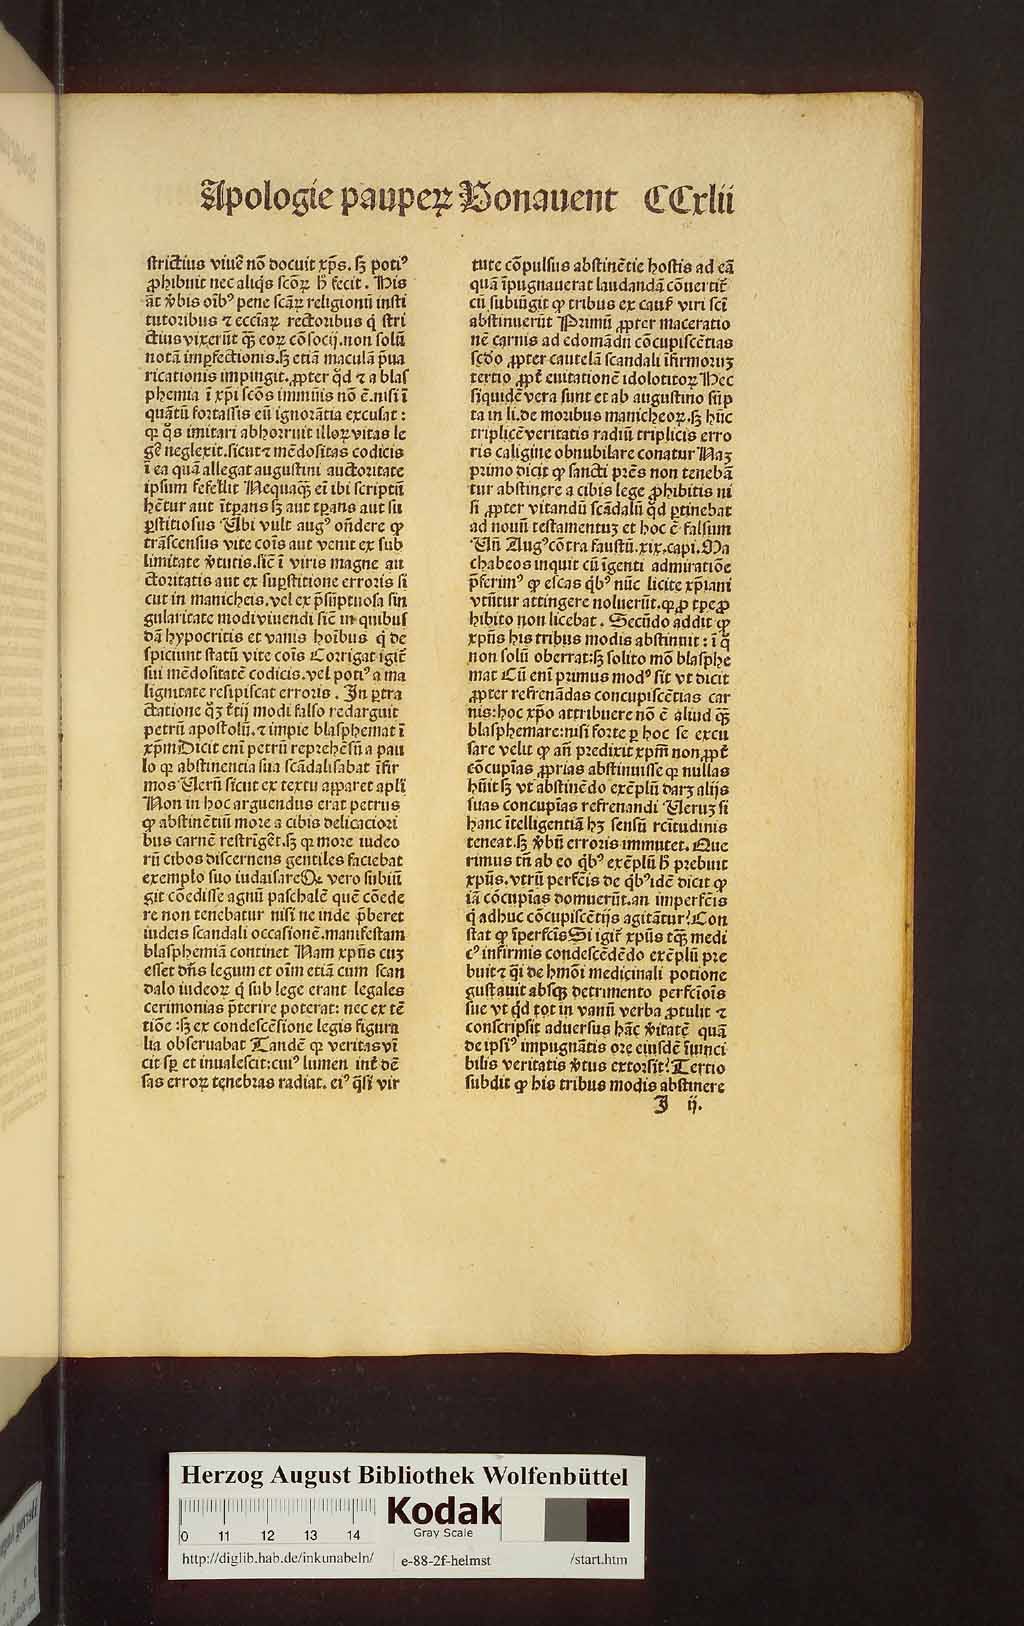 Apologie pauperꝝ Bonauent CCxlii
strictius viuē nō docuit xp̄s. sꝫ potiꝰ
ꝓhibuit nec aliq̄s scōꝝ h̄ fecit. His
āt ꝟbis oībꝰ pene scāꝝ religionū insti
tutoribus ⁊ ecciaꝝ rectoribus q̇ stri
ctius vixerūt qꝫ̄ eoꝝ cōsocij. non solū
notā imꝑfectionis. sꝫ etiā maculā p̄ua
ricationis impingit. ꝓpter qd̄ ⁊ a blas
phemia ī xp̄i scōs immūis nō ē. nisi ī
quātū fortassis eū ignorātia excusat:
qꝛ q̇s imitari abhorruit illoꝝ vitas le
gē neglexit. sicut ⁊ mēdositas codicis
ī ea quā allegat augustini auctoritate
ipsum fefellit Nequaqꝫ̄ eī ibi scriptū
hētur aut īꝑans sꝫ aut tꝑans aut su
ꝑstitiosus Ubi vult augꝰ oñdere ꝙ
trāscensus vite cois aut venit ex sub
limitate ꝟtutis. sic̄ ī viris magne au
ctoritatis aut ex suꝑstitione erroris si
cut in manicheis. vel ex p̄sūptuosa sin
gularitate modi viuendi sic̄ in quibus
dā hypocritis et vanis hoībus q̇ de
spiciunt statū vite cois Corrigat igit̄
sui mēdositatē codicis. vel potiꝰ a ma
lignitate resipiscat erroris. In ꝑtra
ctatione q̇ꝫ t̄tij modi falso redarguit
petrū apostolū. ⁊ impie blasphemat ī
xp̄m Dicit enī petrū reprehēsū a pau
lo qꝛ abstinentia sua scādalisabat īfir
mos Uerū sicut ex textu apparet apl̄i
Non in hoc arguendus erat petrus
ꝙ abstinētiū more a cibis delicaciori
bus carnē restrīgēt. sꝫ qꝛ more iudeo
rū cibos discernens gentiles faciebat
exemplo suo iudaisare Qꝫ vero subiū
git cōedisse agnū paschalē quē cōede
re non tenebatur nisi ne inde p̄beret
iudeis scandali occasionē. manifestam
blasphemiā continet Nam xpūs cuꝫ
esset dn̄s legum et oīm etiā cum scan
dalo iudeoꝝ q̇ sub lege erant legales
cerimonias p̄terire poterat: nec ex tē
tiōe: sꝫ ex condescēsione legis figura
lia obseruabat Tandē qꝛ veritas vī
cit sꝑ et inualescit: cuiꝰ lumen int̄ dē
sas erroꝝ tenebras radiat. eiꝰ q̄si vir
tute cōpulsus abstinētie hostis ad eā
quā īpugnauerat laudandā cōuertit̄
cū subiūgit ꝙ tribus ex cauẜ viri sc̄i
abstinuerūt Primū ꝓpter maceratio
nē carnis ad edomādū cōcupiscētias
scd̄o ꝓpter cautelā scandali īfirmoruꝫ
tertio ꝓpt̄ euitationē idolotitoꝝ Hec
siquidē vera sunt et ab augustino sūp
ta in li. de moribus manicheoꝝ. sꝫ hūc
triplicē veritatis radiū triplicis erro
ris caligine obnubilare conatur Naꝫ
primo dicit ꝙ sancti pr̄es non tenebā
tur abstinere a cibis lege ꝓhibitis ni
si ꝓpter vitandū scādalū qd̄ ꝑtinebat
ad nouū testamentuꝫ et hoc ē falsum
Uñ Augꝰ cōtra faustū. xix. capi. Ma
chabeos inquit cū īgenti admiratiōe
p̄ferimꝰ ꝙ escas q̇bꝰ nūc licite xp̄iani
vtūtur attingere noluerūt. qꝛ ꝓ tꝑe ꝓ
hibito non licebat. Secūdo addit ꝙ
xpūs his tribus modis abstinuit: ī q̄
non solū oberrat: sꝫ solito mō blasphe
mat Cū enī primus modꝰ sit vt dicit
ꝓpter refrenādas concupiscētias car
nis: hoc xp̄o attribuere nō ē aliud qꝫ̄
blasphemare: nisi forte ꝑ hoc se excu
sare velit ꝙ añ predixit xp̄m non ꝓpt̄
cōcupīas ꝓprias abstinuisse qꝛ nullas
hūit sꝫ vt abstinēdo exēplū daꝫ alijs
suas concupīas refrenandi Ueruꝫ si
hanc ītelligentiā hꝫ sensū rcītudinis
teneat. sꝫ ꝟbū erroris immutet. Que
rimus tñ ab eo q̇bꝰ exēplū h̄ prebuit
xpūs. vtrū perfc̄is de q̇bꝰ idē dicit ꝙ
iā cōcupīas domuerūt. an imperfc̄is
q̇ adhuc cōcupiscētijs agitātur? Con
stat ꝙ īperfc̄is Si igit̄ xpūs tqꝫ̄ medi
cꝰ infirmis condescēdēdo exēplū pre
buit ⁊ q̄i de hmōi medicinali potione
gustauit absqꝫ detrimento perfc̄iois
sue vt qd̄ tot in vanū verba ꝓtulit ⁊
conscripsit aduersus hāc ꝟitatē quā
de ipsiꝰ impugnātis ore eiusdē īuinci
bilis veritatis ꝟtus extorsit? Tertio
subdit ꝙ his tribus modis abstinere
J ij.
Herzog August Bibliothek Wolfenbüttel
0 11 12 13 14
Kodak
Gray Scale
http://diglib.hab.de/inkunabeln/ e-88-2f-helmst /start.htm